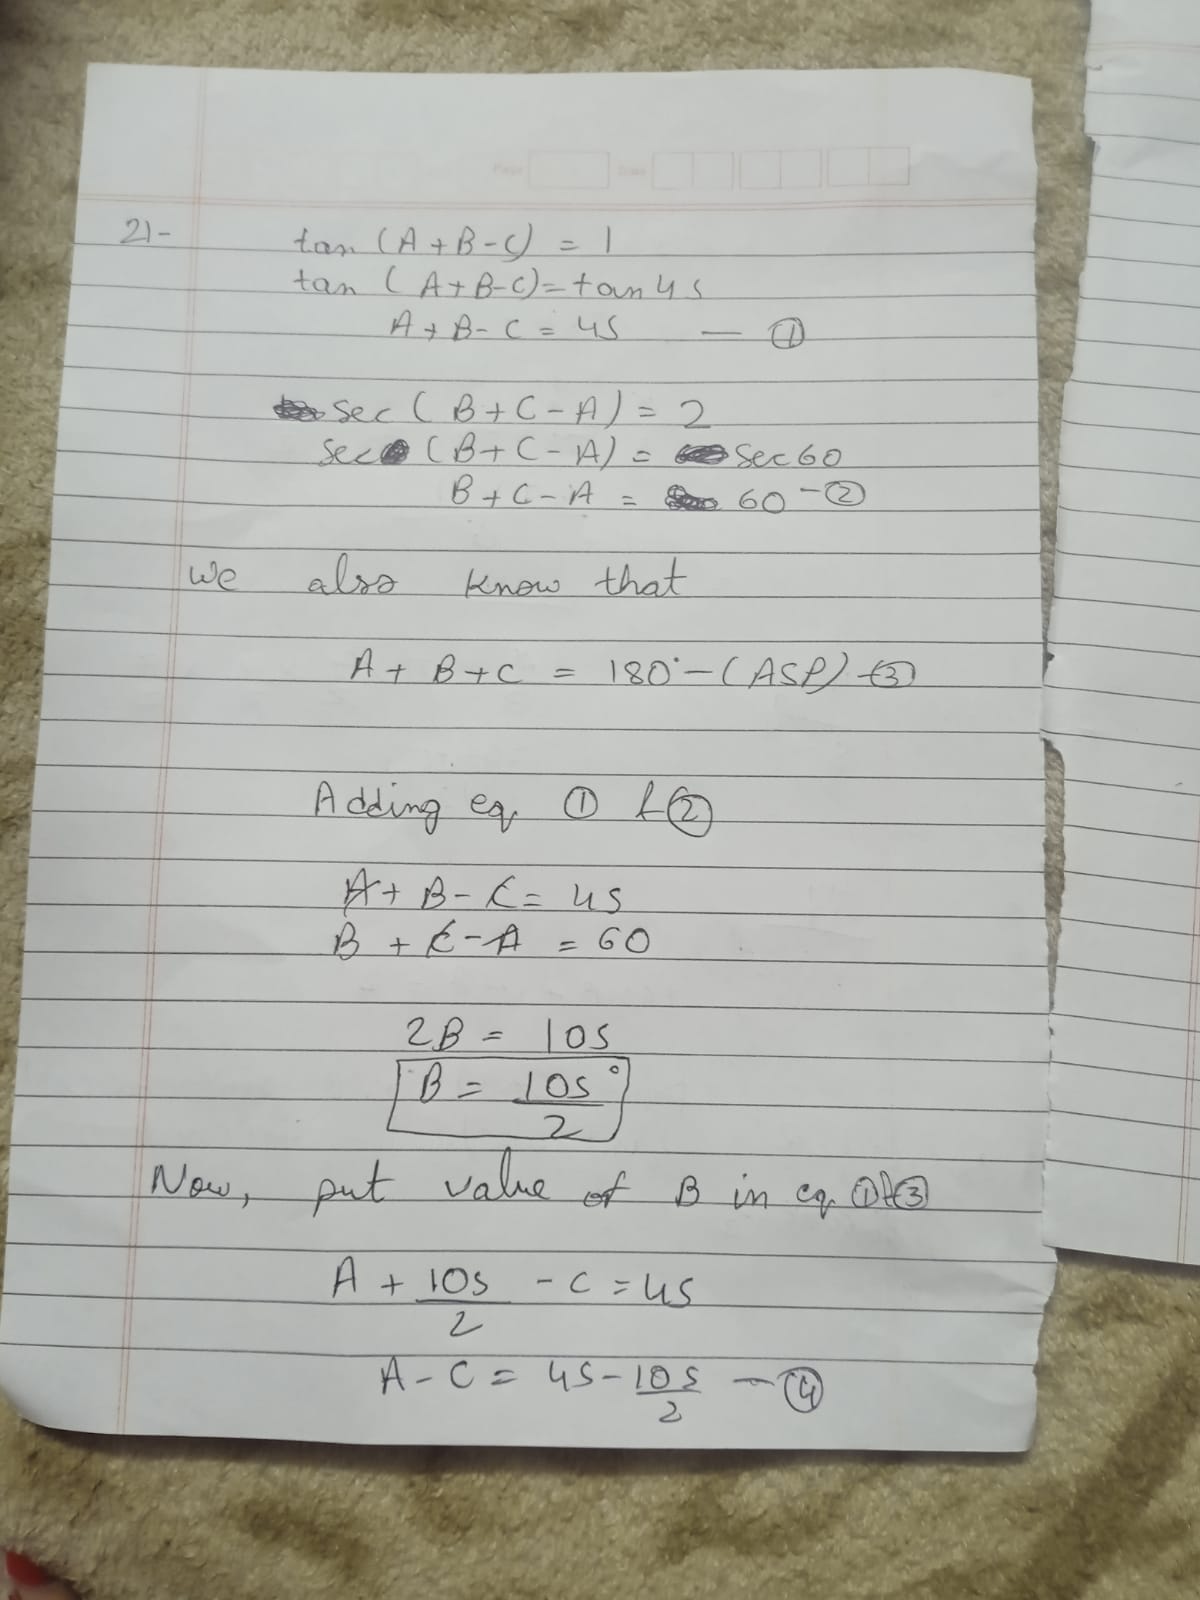 Page Date
21-
tan (A + B - C) = 1
tan (A + B - C) = tan 45
A + B - C = 45 — ①
sec (B + C - A) = 2
sec (B + C - A) = sec 60
B + C - A = 60 - ②
We also know that
A + B + C = 180° - (ASP) - ③
Adding eq ① & ②
A + B - C = 45
B + C - A = 60
2B = 105
B = 105°/2
Now, put value of B in eq ① & ③
A + 105/2 - C = 45
A - C = 45 - 105/2 — ④